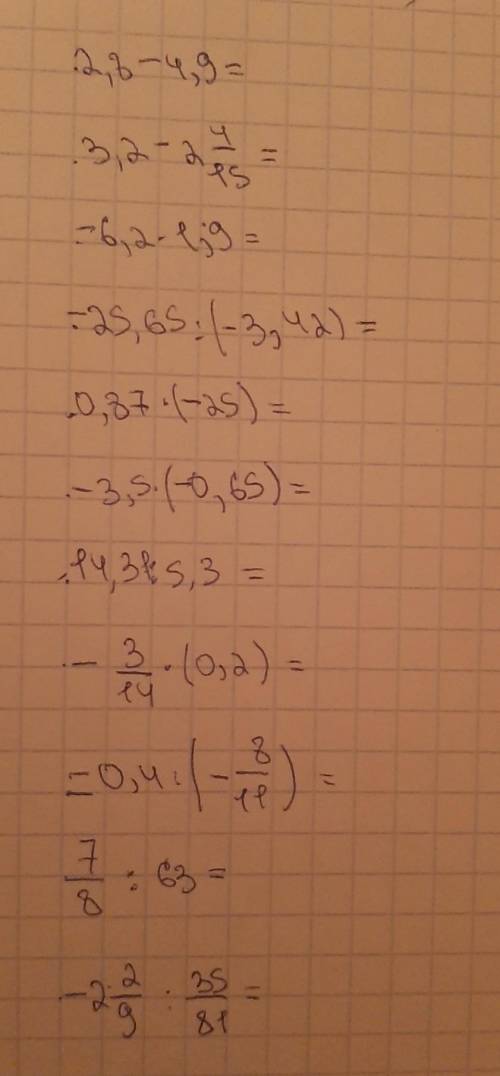 2,8-4,9=
3,2-2 4/15=
-6,2·1,9=
-25,65:(-3,42)=
0,87·(-25)=
-3,5·(-0,65)=
14,31:5,3=
-3/14·(0,2)=
-0,4:(-8/11)=
7/8:63=
-2 2/9:35/81=